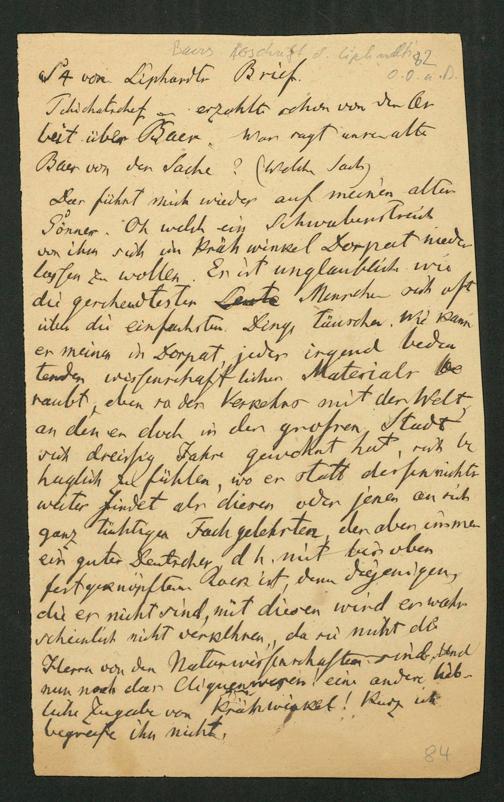 Baers Abschrift d. Liphardt 82
O.O. u. D.
S 4 von Liphardts Brief.
Tschichatschef erzählte schon von der Ar
beit über Baer. Was sagt unser alte
Baer von der Sache? (Welche Sache)
Das führt mich wieder auf meinen alten
Gönner. Oh welch ein Schwabenstreich
von ihm sich in Krähwinkel Dorpat nieder
lassen zu wollen. Er ist unglaublich wie
die gescheudtesten Leute Menschen sich oft
über die einfachsten Dinge täuschen. Wie kann
er meinen in Dorpat, jedes irgend bedeu
tenden wissenschaftlichen Materials be
raubt, eben so des Verkehrs mit der Welt,
an den er doch in der grossen Stadt
sich dreissig Jahre gewöhnt hat, sich be
haglich zu fühlen, wo er statt dessen nichts
weiter findet als diesen oder jenen an sich
ganz tüchtigen Fachgelehrten, der aber immer
ein guter Deutscher d. h. mit bis oben
festgeknöpftem Rock ist, denn diejenigen,
die er nicht sind, mit diesen wird er wahr
scheinlich nicht verkehren, da sie nicht die
Herrn von den Naturwissenschaften sind. Und
nun noch das Cliquenwesen eine andere lieb-
liche Zugabe von Krähwinkel! Kurz ich
begreife ihn nicht.
84